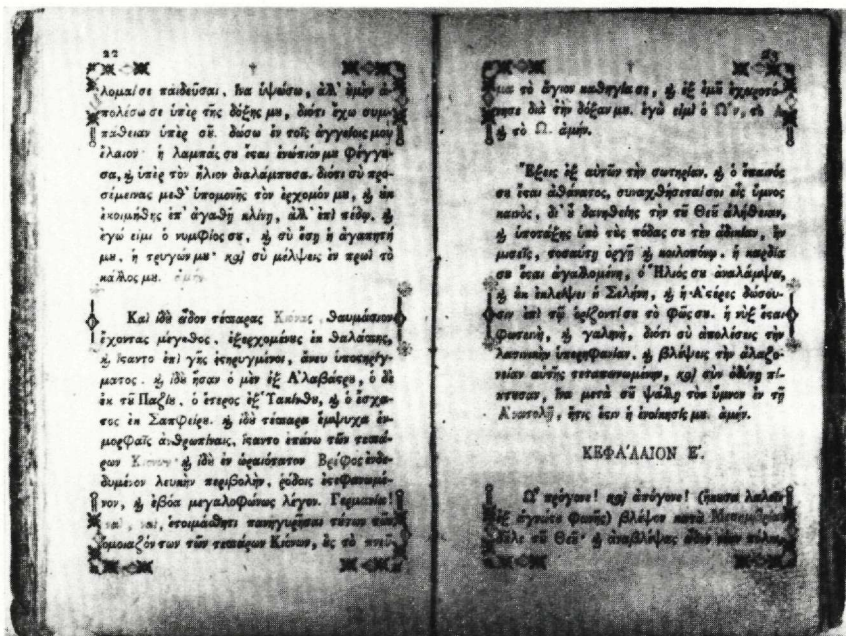 22
λομαί σε παιδεῦσαι, ἵνα ὑψώσω, ἀλλ' ὀμὴν ἀ-
πολέσω σε ὑπὲρ τῆς δόξης μου, διότι ἔχω συμ-
πάθειαν ὑπὲρ σοῦ. δώσω ἐν τοῖς ἀγγείοις μου
ἔλαιον· ἡ λαμπάς σου ἔσαι ἐνώπιόν μου φέγγου-
σα, ϗ ὑπὲρ τὸν ἥλιον διαλάμπουσα. διότι σὺ προ-
σέμεινας μεθ' ὑπομονῆς τὸν ἐρχομόν μου, ϗ οὐκ
ἐκοιμήθης ἐπ' ἀγαθῇ κλίνῃ, ἀλλ' ἐπὶ πέδῳ. ϗ
ἐγώ εἰμι ὁ νυμφίος σου, ϗ σὺ ἔσῃ ἡ ἀγαπητή
μου, ἡ τρυγών μου· καὶ σὺ μέλψεις ἐν πρωῒ τὸ
κάλλος μου. ἀμήν.
Καὶ ἰδοὺ εἶδον τέσσαρας Κίονας, θαυμάσιον
ἔχοντας μέγεθος, ἐξερχομένους ἐκ θαλάσσης,
ϗ ἵσαντο ἐπὶ γῆς ἐστηριγμένοι, ἄνευ ὑποστηρίγ-
ματος. ϗ ἰδοὺ ἦσαν ὁ μὲν ἐξ Ἀλαβάστρου, ὁ δὲ
ἐκ τοῦ Παζίου, ὁ ἕτερος ἐξ Ὑακίνθου, ϗ ὁ ἔσχα-
τος ἐκ Σαπφείρου. ϗ ἰδοὺ τέσσαρα ἔμψυχα ἐν
μορφαῖς ἀνθρωπίναις, ἵσαντο ἐπάνω τῶν τεσσά-
ρων Κιόνων· ϗ ἰδοὺ ἓν ὡραιότατον Βρέφος ἐνδε-
δυμένον λευκὴν περιβολὴν, ῥόδοις ἐστεφανωμέ-
νον, ϗ ἐβόα μεγαλοφώνως λέγον. Γερμανία!
ναὶ, ναὶ, ἑτοιμάσθητι πανηγυρῆσαι τούτων τῶν
ὁμοιαζόντων τῶν τεσσάρων Κιόνων, ἃς τὸ πνεῦ-
23
μα τὸ ἅγιον καθηγίασε, ϗ ἐξ ἐμοῦ ἐχειροτό-
νησε διὰ τὴν δόξαν μου. ἐγώ εἰμι ὁ Ὢν, τὸ Α
ϗ τὸ Ω. ἀμήν.
Ἕξεις ἐξ αὐτῶν τὴν σωτηρίαν, ϗ ὁ ἔπαινός
σου ἔσαι ἀθάνατος, συναχθήσεταί σοι εἷς ὕμνος
καινὸς, δι' οὗ δανηθείης τὴν τοῦ Θεοῦ ἀλήθειαν,
ϗ ὑποτάξῃς ὑπὸ τοὺς πόδας σου τὴν ἀδικίαν, ἣν
μισεῖς, τοσαύτῃ ὀργῇ ϗ κοιλοπόνῳ. ἡ καρδία
σου ἔσαι ἀγαλλομένη, ὁ Ἥλιός σου ἀναλάμψει,
ϗ οὐκ ἐκλείψει ἡ Σελήνη, ϗ ἡ Ἀστέρες δώσου-
σιν ἐπὶ τῷ ὁρίζοντί σου τὸ φῶς σου. ἡ νὺξ ἔσαι
φωτεινὴ, ϗ γαληνὴ, διότι σὺ ἀπολέσεις τὴν
λατινικὴν ὑπερηφανίαν. ϗ βλέψεις τὴν ἀλαζο-
νείαν αὐτῆς τεταπεινωμένην, καὶ σὺν ὀδύνῃ πί-
πτουσαν, ἵνα μετὰ σοῦ ψάλλῃ τὸν ὕμνον ἐν τῇ
Ἀνατολῇ, ἥτις ἐστιν ἡ ἐνοίκησίς μου. ἀμήν.
ΚΕΦΑ'ΛΑΙΟΝ Ε'.
Ὦ πρόγονε! καὶ ἀπόγονε! (ἤκουσα λαλεῖν
ἐξ ἀγνώστου φωνῆς) βλέψον κατὰ Μεσημβρίαν
δοῦλε τοῦ Θεοῦ· ϗ ἀναβλέψας εἶδον νέαν πόλιν,